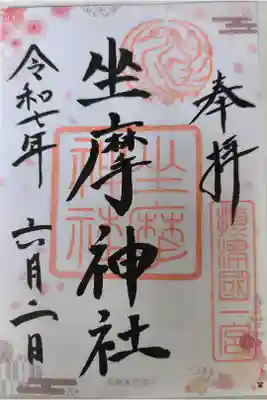 奉拝
摂津國一宮
坐摩神社
坐摩神社
令和七年
六月二日